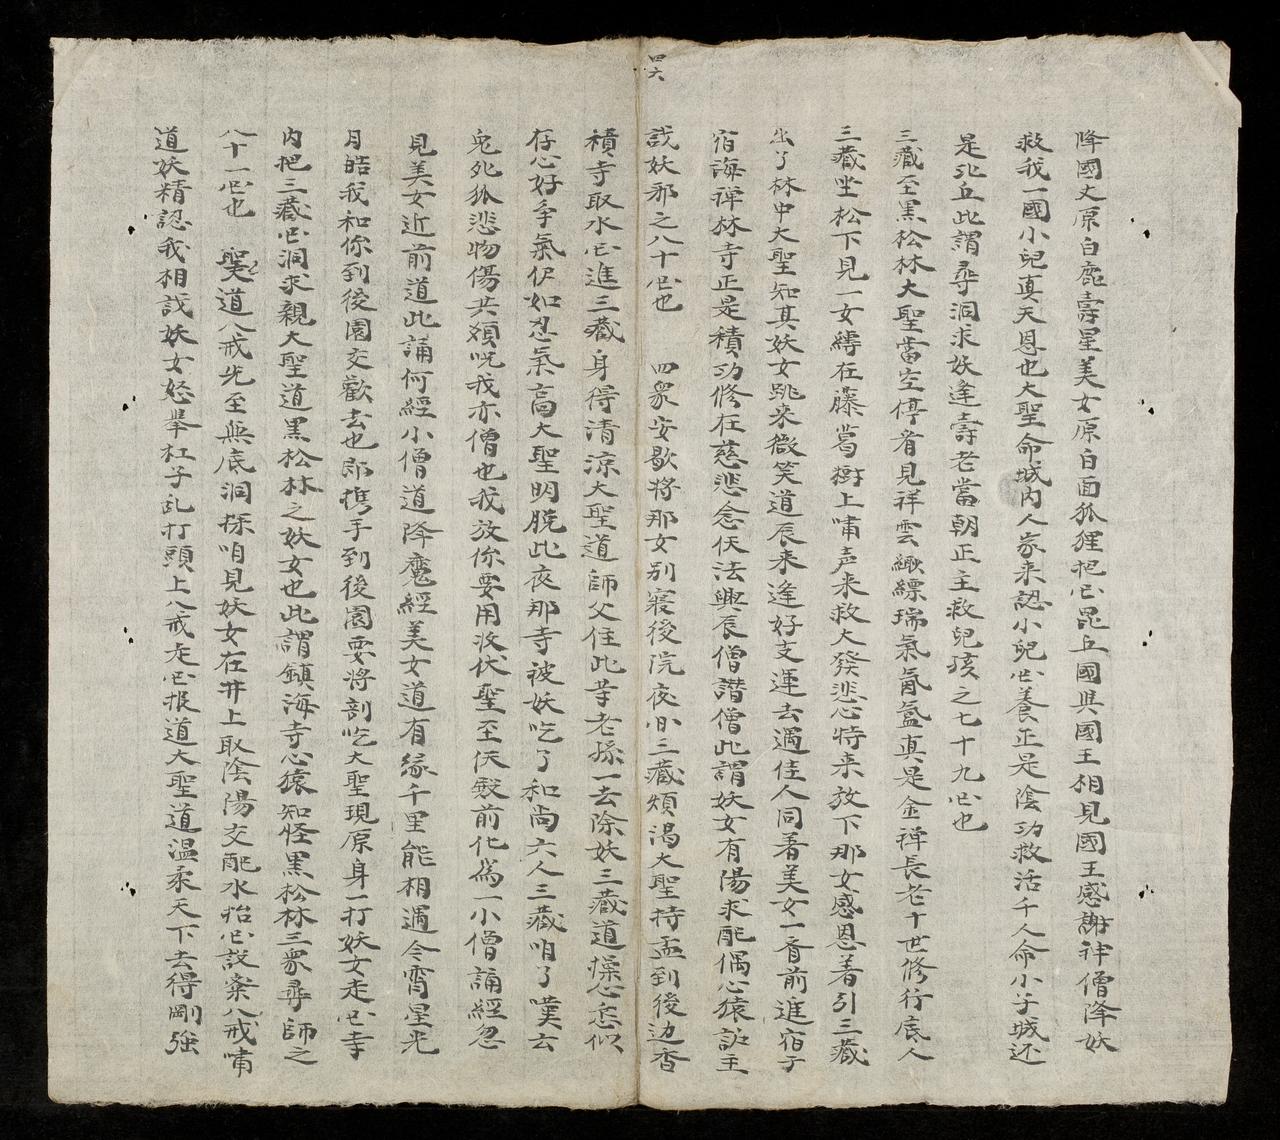 四六
降國丈原白鹿壽星美女原白面狐狸把囬昆丘國與國王相見國王感謝神僧降妖
救我一國小兒真天恩也大聖命城內人家来認小兒囬養正是陰功救活千人命小子城还
是比丘此謂尋洞求妖逢壽老當朝正主救兒孩之七十九囬也
三藏至黑松林大聖當空停看見祥雲緲縹瑞氣氤氳真是金禅長老十世修行底人
三藏坐松下見一女縛在藤葛樹上啸声来救大發悲心特来放下那女感恩着引三藏
出了林中大聖知其妖女跳来微笑道辰来逢好支運去遇佳人同着美女一斉前進宿于
宿海禅林寺正是積功修在慈悲念仸法興辰僧譛僧此謂妖女有陽求配偶心猿䛕主
識妖邪之八十囬也 四衆安歇将那女别寝後院夜间三藏煩渴大聖持盂到後边香
積寺取水囬進三藏身得清凉大聖道師父住此等老孫一去除妖三藏道燥心怎似
存心好争氣伬如忍氣高大聖明脱此夜那寺被妖吃了和尚六人三藏咱了嘆云
兔死狐悲物傷共類呪我亦僧也我放你要用汝伏聖至仸殿前化為一小僧誦經忽
見美女近前道此誦何經小僧道降魔經美女道有緣千里能相遇令宵星光
月皓我和你到後園交歡去也即携手到後園要将剖吃大聖現原身一打妖女走囬寺
内把三藏囬洞求親大聖道黑松林之妖女也此謂鎮海寺心猿知怪黑松林三衆尋師之
八十一囬也 聖道八戒先至無底洞探咱見妖女在井上取陰陽交配水抬囬設案八戒啸
道妖精認我相識妖女怒舉杠子乱打頭上八戒走囬报道大聖道温柔天下去得剛強